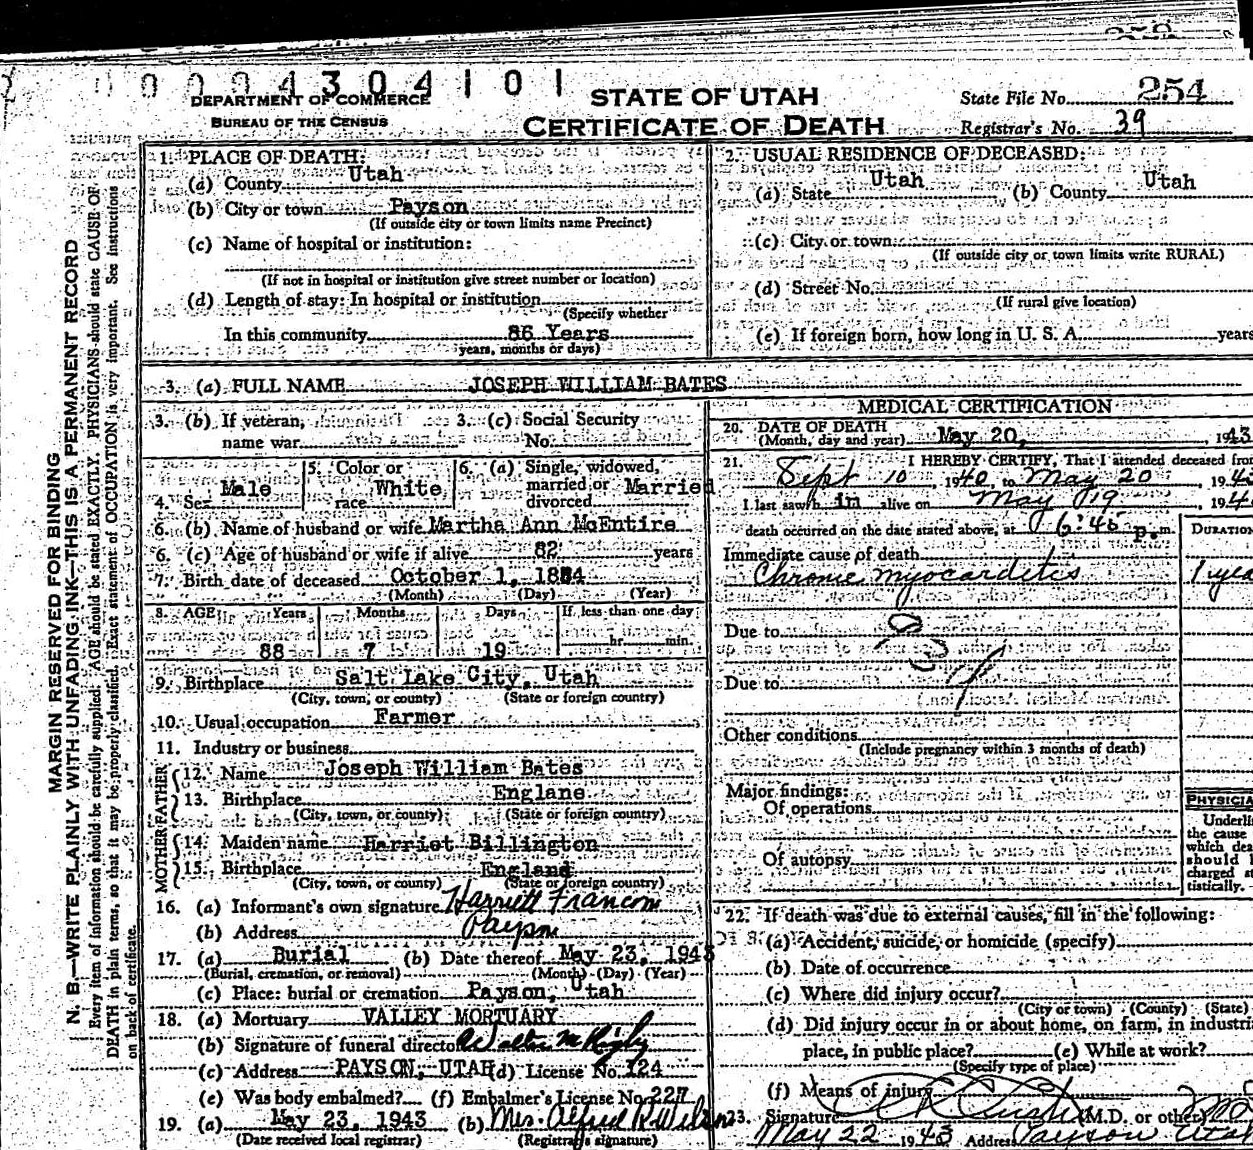 0004304101
DEPARTMENT OF COMMERCE
BUREAU OF THE CENSUS
STATE OF UTAH
CERTIFICATE OF DEATH
State File No. 254
Registrar's No. 39
MARGIN RESERVED FOR BINDING
N. B.—WRITE PLAINLY WITH UNFADING INK—THIS IS A PERMANENT RECORD
Every item of information should be carefully supplied. AGE should be stated EXACTLY. PHYSICIANS should state CAUSE OF
DEATH in plain terms, so that it may be properly classified. Exact statement of OCCUPATION is very important. See instructions
on back of certificate.
1. PLACE OF DEATH:
(a) County Utah
(b) City or town Payson
(If outside city or town limits name Precinct)
(c) Name of hospital or institution:
(If not in hospital or institution give street number or location)
(d) Length of stay: In hospital or institution
(Specify whether
In this community 86 Years
years, months or days)
2. USUAL RESIDENCE OF DECEASED:
(a) State Utah (b) County Utah
(c) City or town
(If outside city or town limits write RURAL)
(d) Street No.
(If rural give location)
(e) If foreign born, how long in U. S. A. years
3. (a) FULL NAME JOSEPH WILLIAM BATES
3. (b) If veteran, name war
3. (c) Social Security No.
4. Sex Male
5. Color or race White
6. (a) Single, widowed, married or divorced Married
6. (b) Name of husband or wife Martha Ann McEntire
6. (c) Age of husband or wife if alive 82 years
7. Birth date of deceased October 1, 1854
(Month) (Day) (Year)
8. AGE: Years Months Days If less than one day
88 7 19 hr. min.
9. Birthplace Salt Lake City, Utah
(City, town, or county) (State or foreign country)
10. Usual occupation Farmer
11. Industry or business
FATHER
12. Name Joseph William Bates
13. Birthplace Englane
(City, town, or county) (State or foreign country)
MOTHER
14. Maiden name Harriet Billington
15. Birthplace England
(City, town, or county) (State or foreign country)
16. (a) Informant's own signature Harriett Francom
(b) Address Payson
17. (a) Burial (b) Date thereof May 23, 1943
(Burial, cremation, or removal) (Month) (Day) (Year)
(c) Place: burial or cremation Payson, Utah
18. (a) Mortuary VALLEY MORTUARY
(b) Signature of funeral director Walter M Rigby
(c) Address PAYSON, UTAH (d) License No. 124
(e) Was body embalmed? (f) Embalmer's License No. 227
19. (a) May 23, 1943 (b) Mrs. Alfred R Wilson
(Date received local registrar) (Registrar's signature)
MEDICAL CERTIFICATION
20. DATE OF DEATH
(Month, day and year) May 20, 1943
21. I HEREBY CERTIFY, That I attended deceased from
Sept 10, 1940, to May 20, 194
I last saw h im alive on May 19, 194
death occurred on the date stated above, at 6:45 p.m.
DURATION
Immediate cause of death
Chronic myocarditis 1 yea
Due to
Due to
Other conditions
(Include pregnancy within 3 months of death)
Major findings:
Of operations
Of autopsy
PHYSICIA
Underli
the cause
which dea
should b
charged st
tistically.
22. If death was due to external causes, fill in the following:
(a) Accident, suicide, or homicide (specify)
(b) Date of occurrence
(c) Where did injury occur?
(City or town) (County) (State)
(d) Did injury occur in or about home, on farm, in industri
place, in public place? (e) While at work?
(Specify type of place)
(f) Means of injury
23. Signature (M.D. or other)
May 22 1943 Address Payson Utah